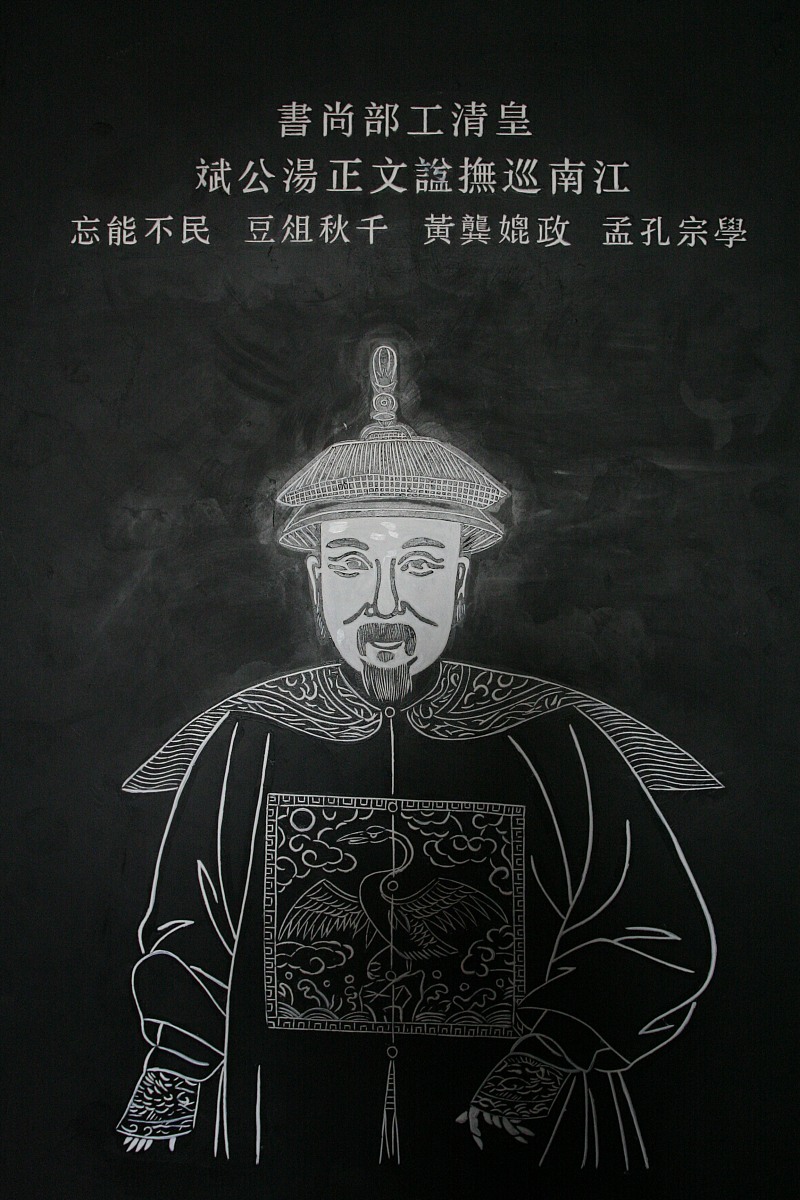 皇清工部尚書
江南巡撫諡文正湯公斌
學宗孔孟 政媲龔黃 千秋俎豆 民不能忘